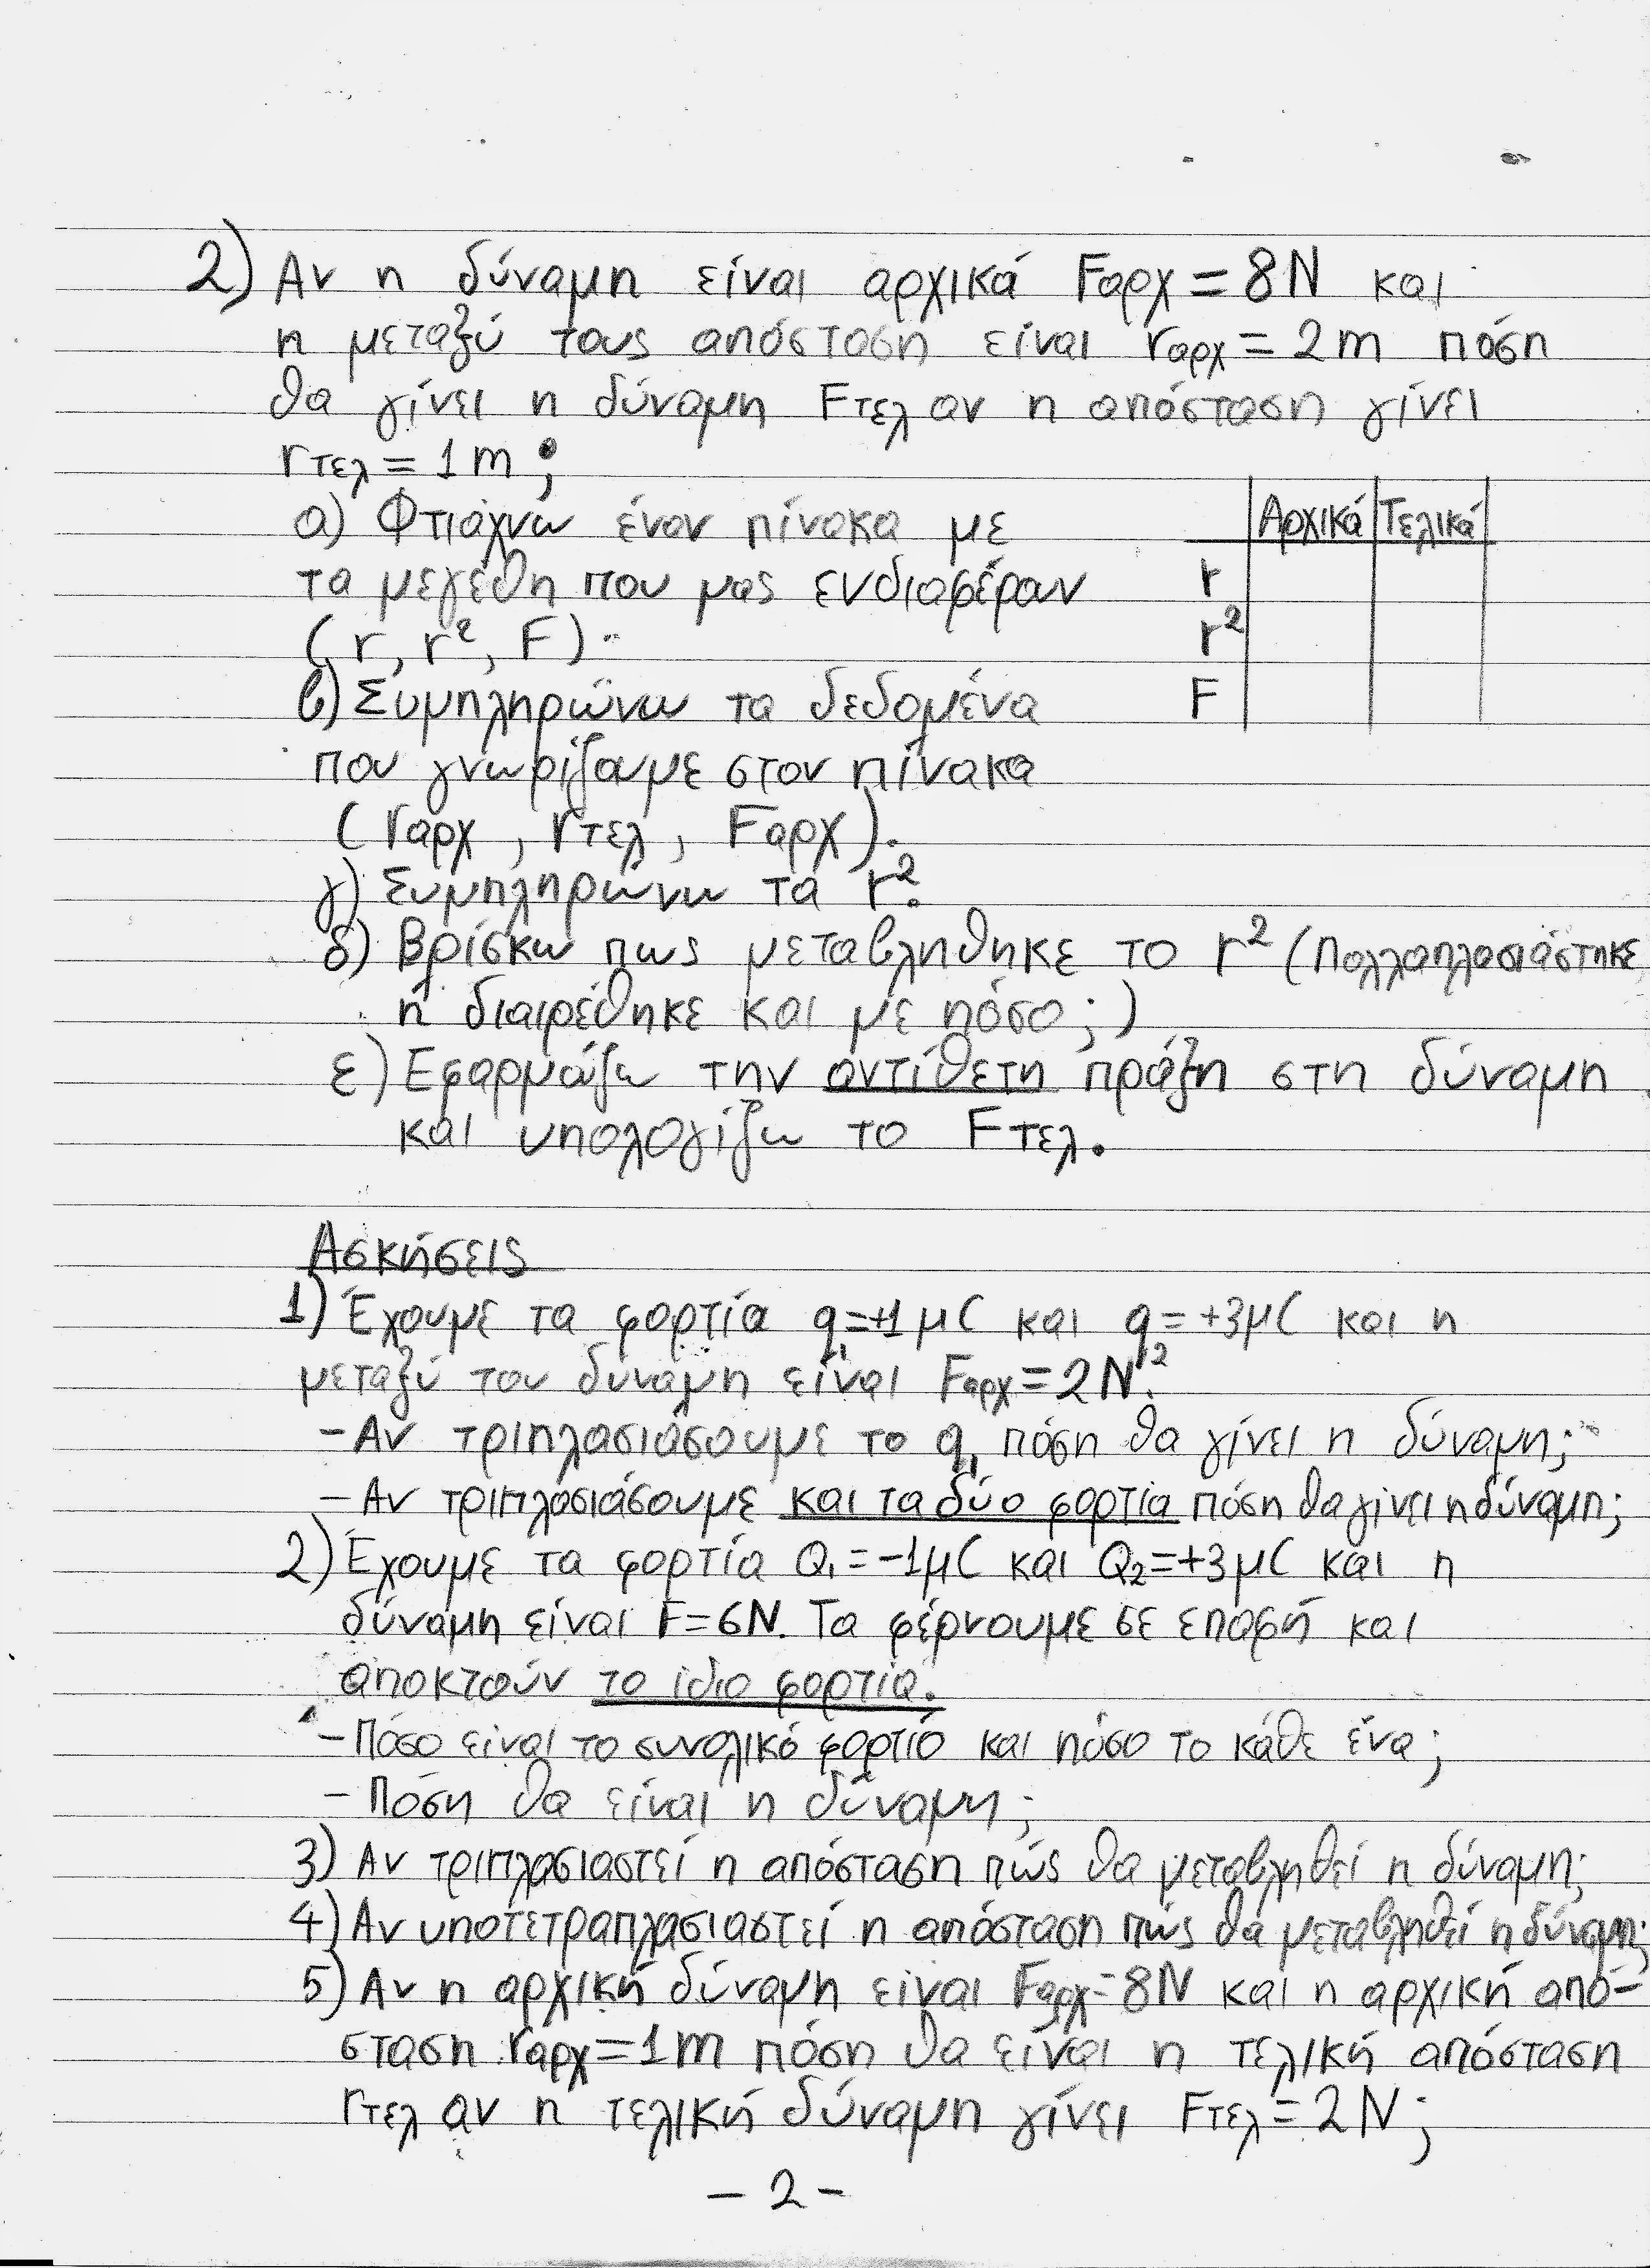 2) Αν η δύναμη είναι αρχικά Fαρχ = 8N και
η μεταξύ τους απόσταση είναι rαρχ = 2m πόση
θα γίνει η δύναμη Fτελ αν η απόσταση γίνει
rτελ = 1m ;
α) Φτιάχνω έναν πίνακα με
τα μεγέθη που μας ενδιαφέρουν
(r, r², F).
Αρχικά Τελικά
r
r²
F
β) Συμπληρώνω τα δεδομένα
που γνωρίζουμε στον πίνακα
(rαρχ, rτελ, Fαρχ).
γ) Συμπληρώνω τα r².
δ) Βρίσκω πως μεταβλήθηκε το r² (Πολλαπλασιάστηκε
ή διαιρέθηκε και με πόσο;)
ε) Εφαρμόζω την αντίθετη πράξη στη δύναμη
και υπολογίζω το Fτελ.
Ασκήσεις
1) Έχουμε τα φορτία q₁=+1μC και q₂=+3μC και η
μεταξύ του δύναμη είναι Fαρχ=2N.
- Αν τριπλασιάσουμε το q₁ πόση θα γίνει η δύναμη;
- Αν τριπλασιάσουμε και τα δύο φορτία πόση θα γίνει η δύναμη;
2) Έχουμε τα φορτία Q₁=-1μC και Q₂=+3μC και η
δύναμη είναι F=6N. Τα φέρνουμε σε επαφή και
αποκτούν το ίδιο φορτίο.
- Πόσο είναι το συνολικό φορτίο και πόσο το κάθε ένα;
- Πόση θα είναι η δύναμη;
3) Αν τριπλασιαστεί η απόσταση πώς θα μεταβληθεί η δύναμη;
4) Αν υποτετραπλασιαστεί η απόσταση πώς θα μεταβληθεί η δύναμη;
5) Αν η αρχική δύναμη είναι Fαρχ=8N και η αρχική από-
σταση rαρχ=1m πόση θα είναι η τελική απόσταση
rτελ αν η τελική δύναμη γίνει Fτελ=2N;
- 2 -